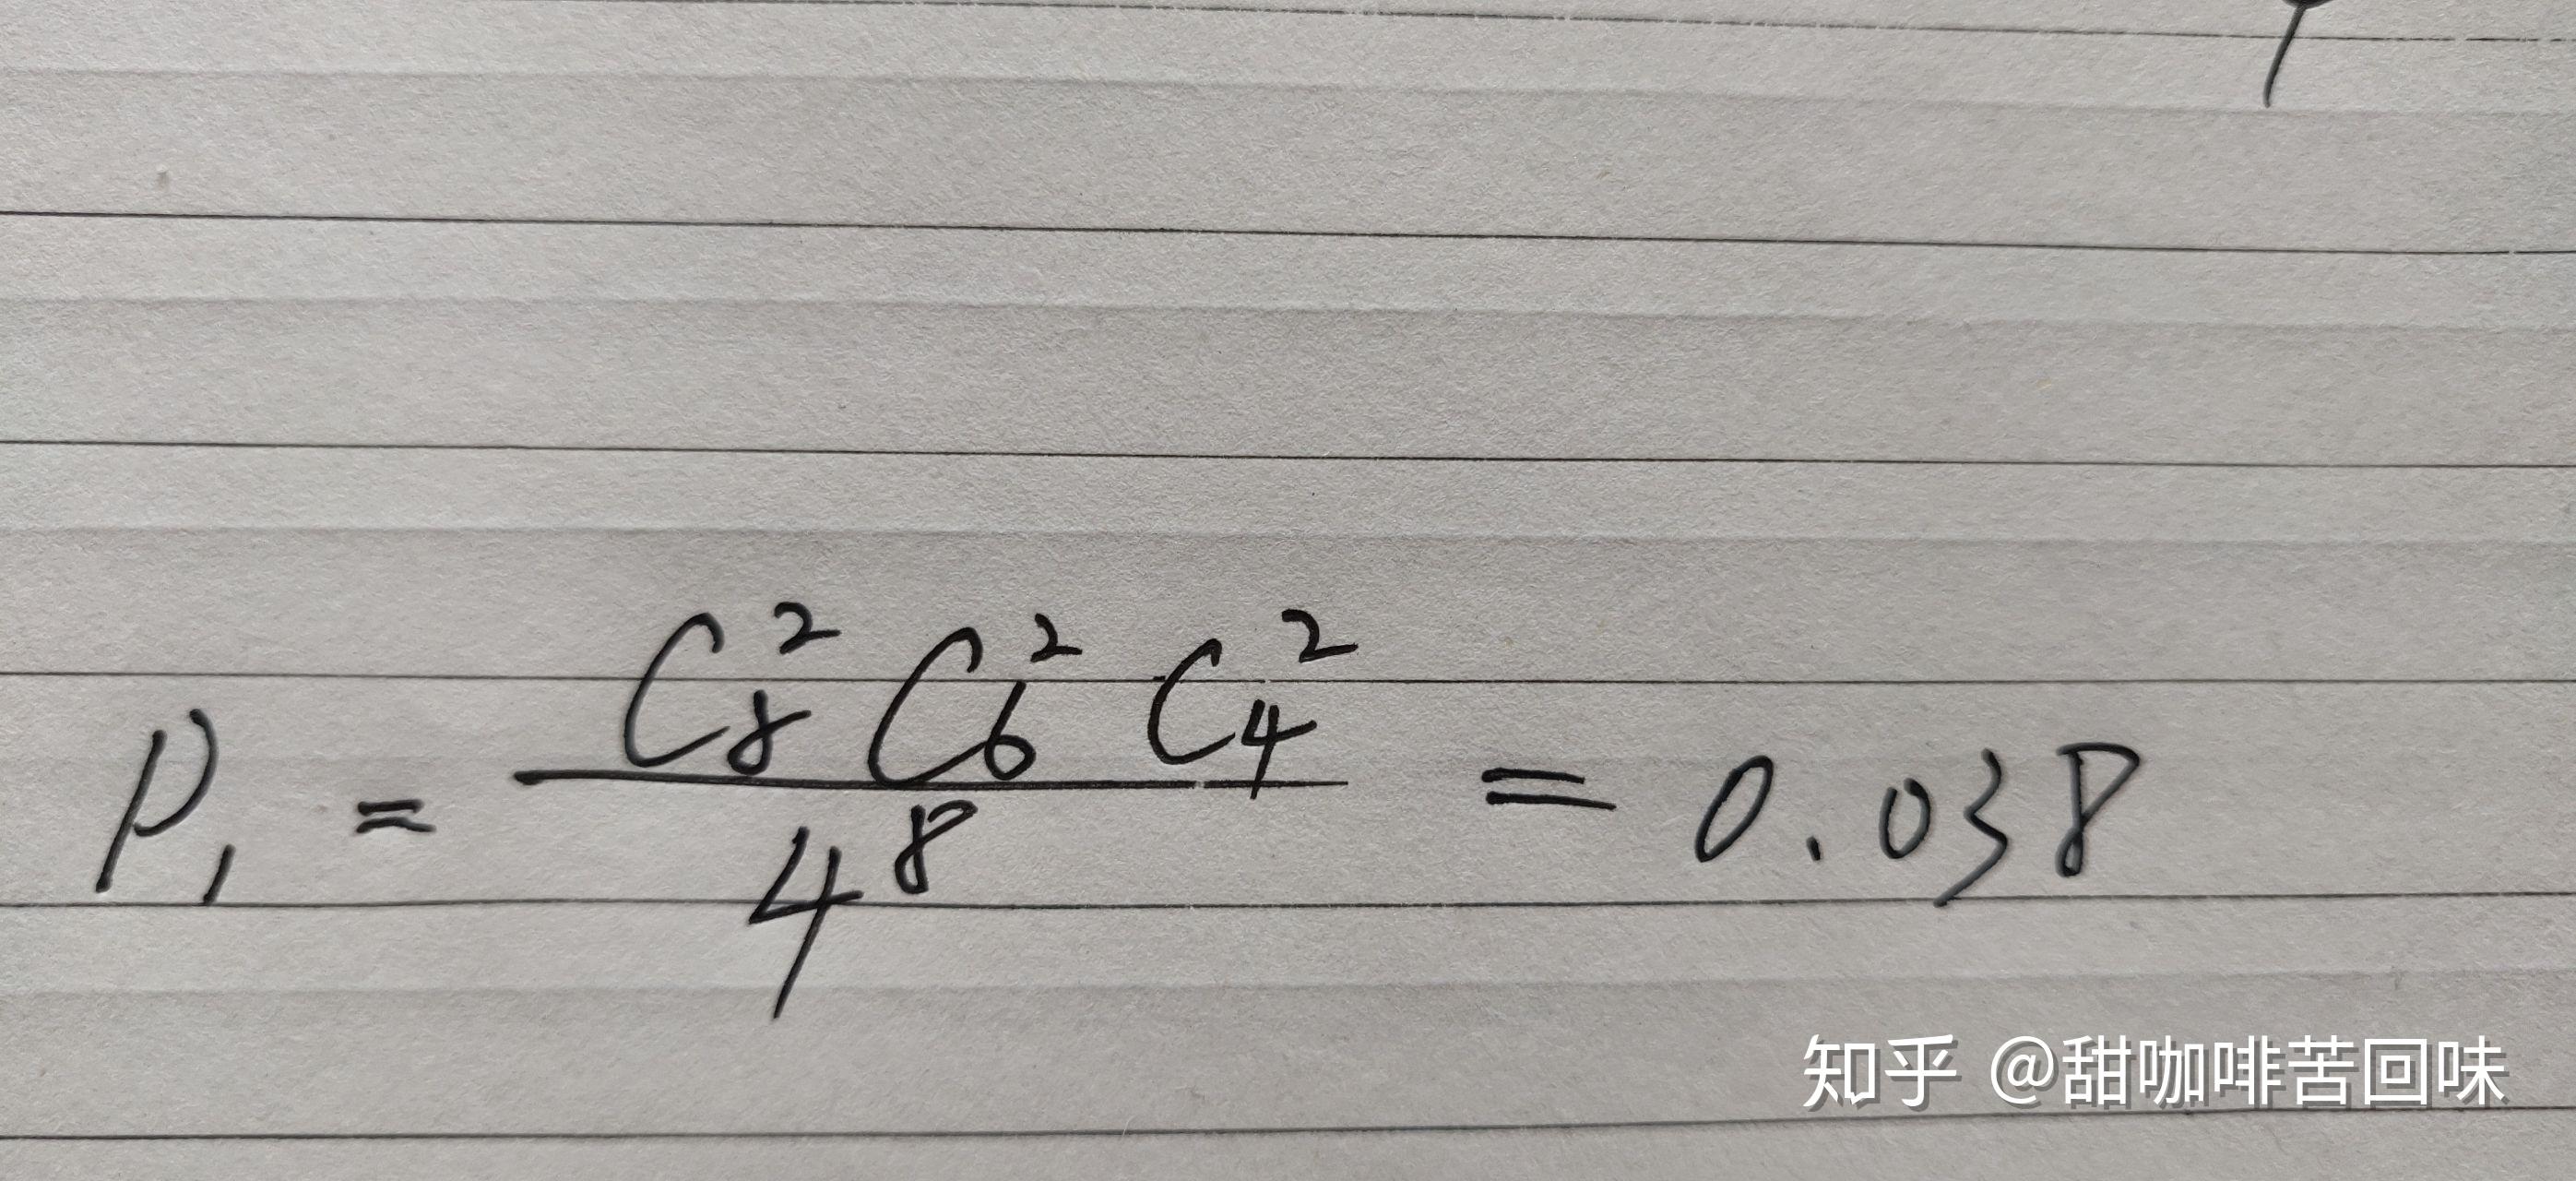 P₁ = C₈² C₆² C₄² / 4⁸ = 0.038
知乎 @甜咖啡苦回味